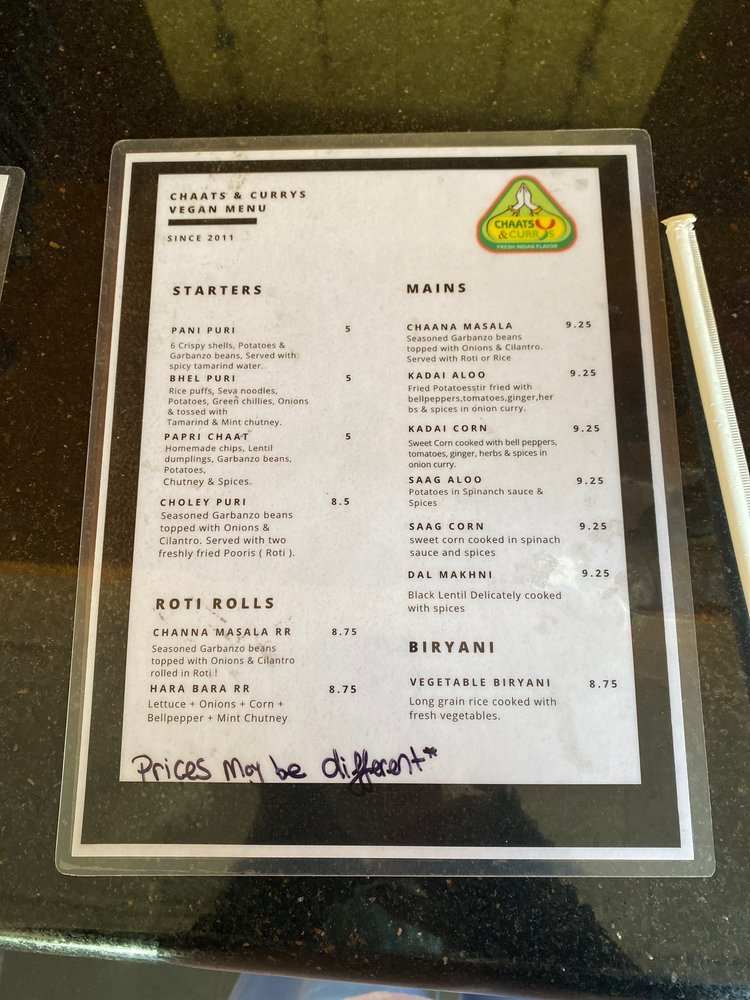 CHAATS & CURRYS
VEGAN MENU
SINCE 2011
CHAATS
& CURRYS
FRESH INDIAN FLAVOR
STARTERS
PANI PURI 5
6 Crispy shells, Potatoes &
Garbanzo beans, Served with
spicy tamarind water.
BHEL PURI 5
Rice puffs, Seva noodles,
Potatoes, Green chillies, Onions
& tossed with
Tamarind & Mint chutney.
PAPRI CHAAT 5
Homemade chips, Lentil
dumplings, Garbanzo beans,
Potatoes,
Chutney & Spices.
CHOLEY PURI 8.5
Seasoned Garbanzo beans
topped with Onions &
Cilantro. Served with two
freshly fried Pooris ( Roti ).
ROTI ROLLS
CHANNA MASALA RR 8.75
Seasoned Garbanzo beans
topped with Onions & Cilantro
rolled in Roti !
HARA BARA RR 8.75
Lettuce + Onions + Corn +
Bellpepper + Mint Chutney
MAINS
CHAANA MASALA 9.25
Seasoned Garbanzo beans
topped with Onions & Cilantro.
Served with Roti or Rice
KADAI ALOO 9.25
Fried Potatoesstir fried with
bellpeppers,tomatoes,ginger,her
bs & spices in onion curry.
KADAI CORN 9.25
Sweet Corn cooked with bell peppers,
tomatoes, ginger, herbs & spices in
onion curry.
SAAG ALOO 9.25
Potatoes in Spinanch sauce &
Spices
SAAG CORN 9.25
sweet corn cooked in spinach
sauce and spices
DAL MAKHNI 9.25
Black Lentil Delicately cooked
with spices
BIRYANI
VEGETABLE BIRYANI 8.75
Long grain rice cooked with
fresh vegetables.
Prices may be different*